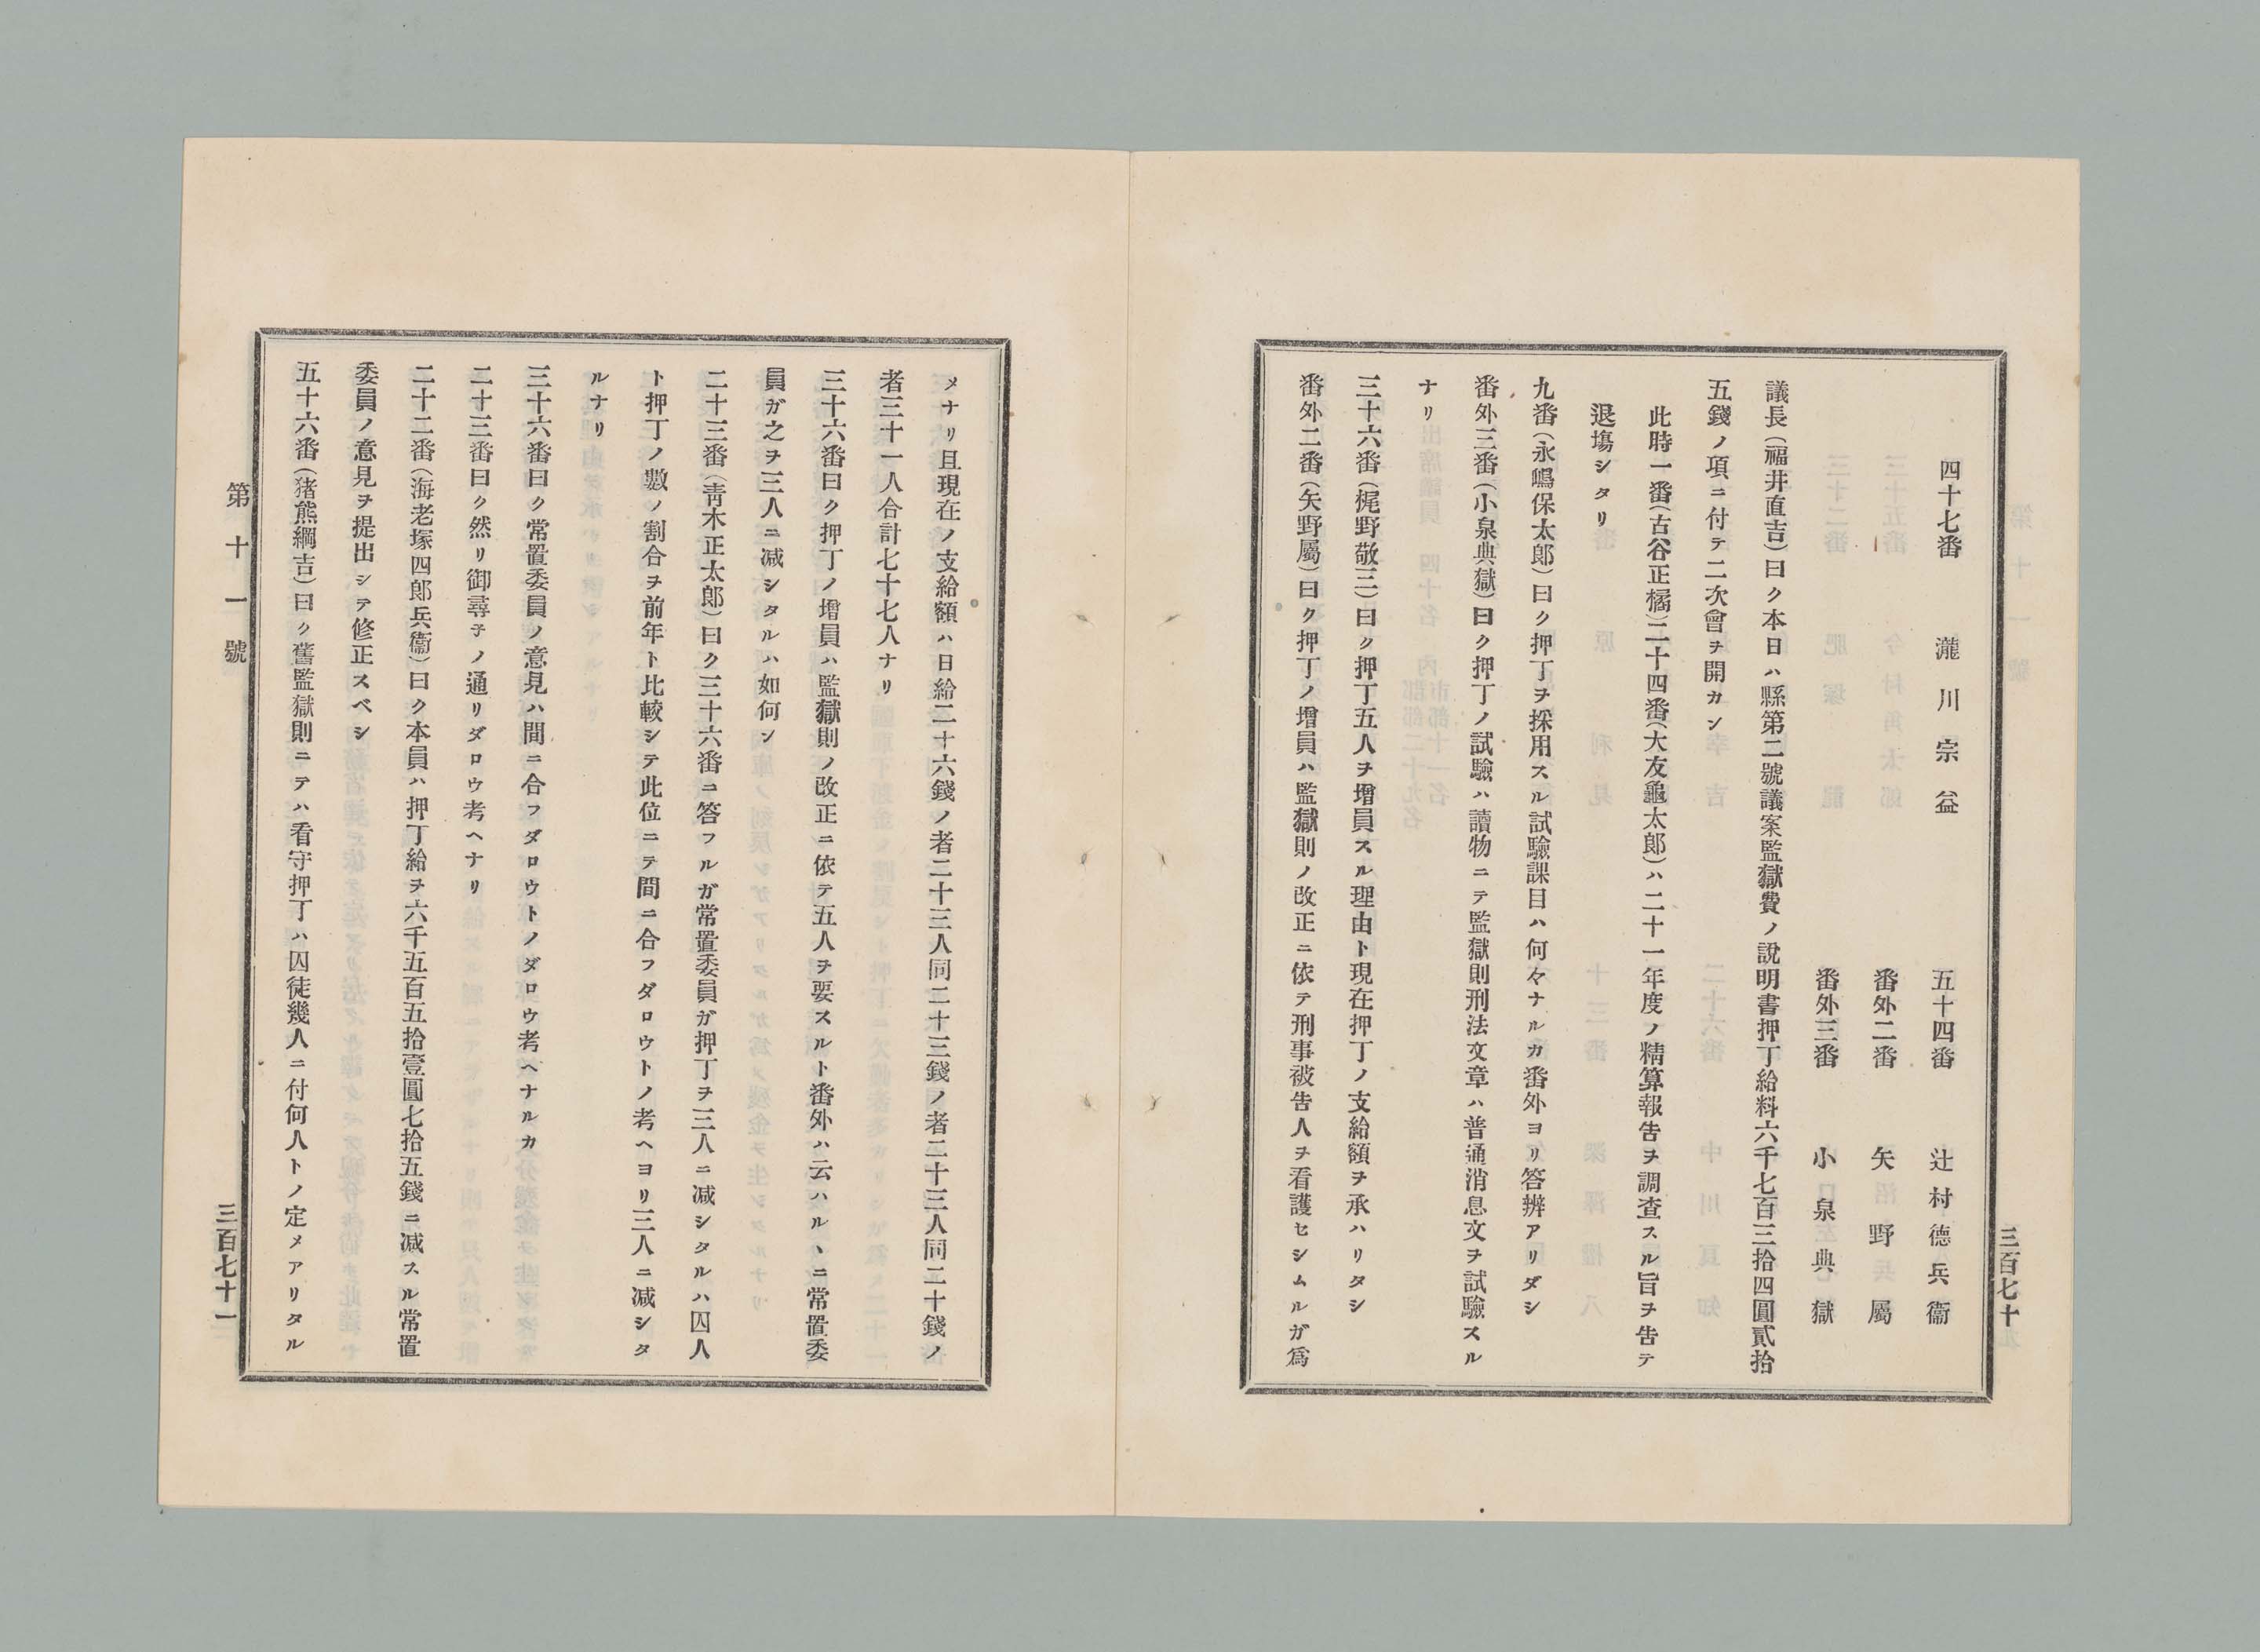 三百七十
四十七番　瀧川宗益　五十四番　辻村德兵衞
番外二番　矢野屬
番外三番　小泉典獄
議長（福井直吉）曰ク本日ハ縣第二號議案監獄費ノ說明書押丁給料六千七百三拾四圓貳拾
五錢ノ項ニ付テ二次會ヲ開カン
此時一番（古谷正橘）二十四番（大友龜太郞）ハ二十一年度ノ精算報告ヲ調査スル旨ヲ告テ
退塲シタリ
九番（永嶋保太郞）曰ク押丁ヲ採用スル試驗課目ハ何々ナルカ番外ヨリ答辨アリダシ
番外三番（小泉典獄）曰ク押丁ノ試驗ハ讀物ニテ監獄則刑法文章ハ普通消息文ヲ試驗スル
ナリ
三十六番（梶野敬三）曰ク押丁五人ヲ增員スル理由ト現在押丁ノ支給額ヲ承ハリタシ
番外二番（矢野屬）曰ク押丁ノ增員ハ監獄則ノ改正ニ依テ刑事被告人ヲ看護セシムルガ爲
メナリ且現在ノ支給額ハ日給二十六錢ノ者二十三人同二十三錢ノ者二十三人同二十錢ノ
者三十一人合計七十七人ナリ
三十六番曰ク押丁ノ增員ハ監獄則ノ改正ニ依テ五人ヲ要スルト番外ハ云ハルヽニ常置委
員ガ之ヲ三人ニ减シタルハ如何ン
二十三番（靑木正太郞）曰ク三十六番ニ答フルガ常置委員ガ押丁ヲ三人ニ减シタルハ囚人
ト押丁ノ數ノ割合ヲ前年ト比較シテ此位ニテ間ニ合フダロウトノ考ヘヨリ三人ニ减シタ
ルナリ
三十六番曰ク常置委員ノ意見ハ間ニ合フダロウトノダロウ考ヘナルカ
二十三番曰ク然リ御尋子ノ通リダロウ考ヘナリ
二十二番（海老塚四郞兵衞）曰ク本員ハ押丁給ヲ六千五百五拾壹圓七拾五錢ニ减スル常置
委員ノ意見ヲ提出シテ修正スベシ
五十六番（猪熊綱吉）曰ク舊監獄則ニテハ看守押丁ハ囚徒幾人ニ付何人トノ定メアリタル
第十一號
三百七十一